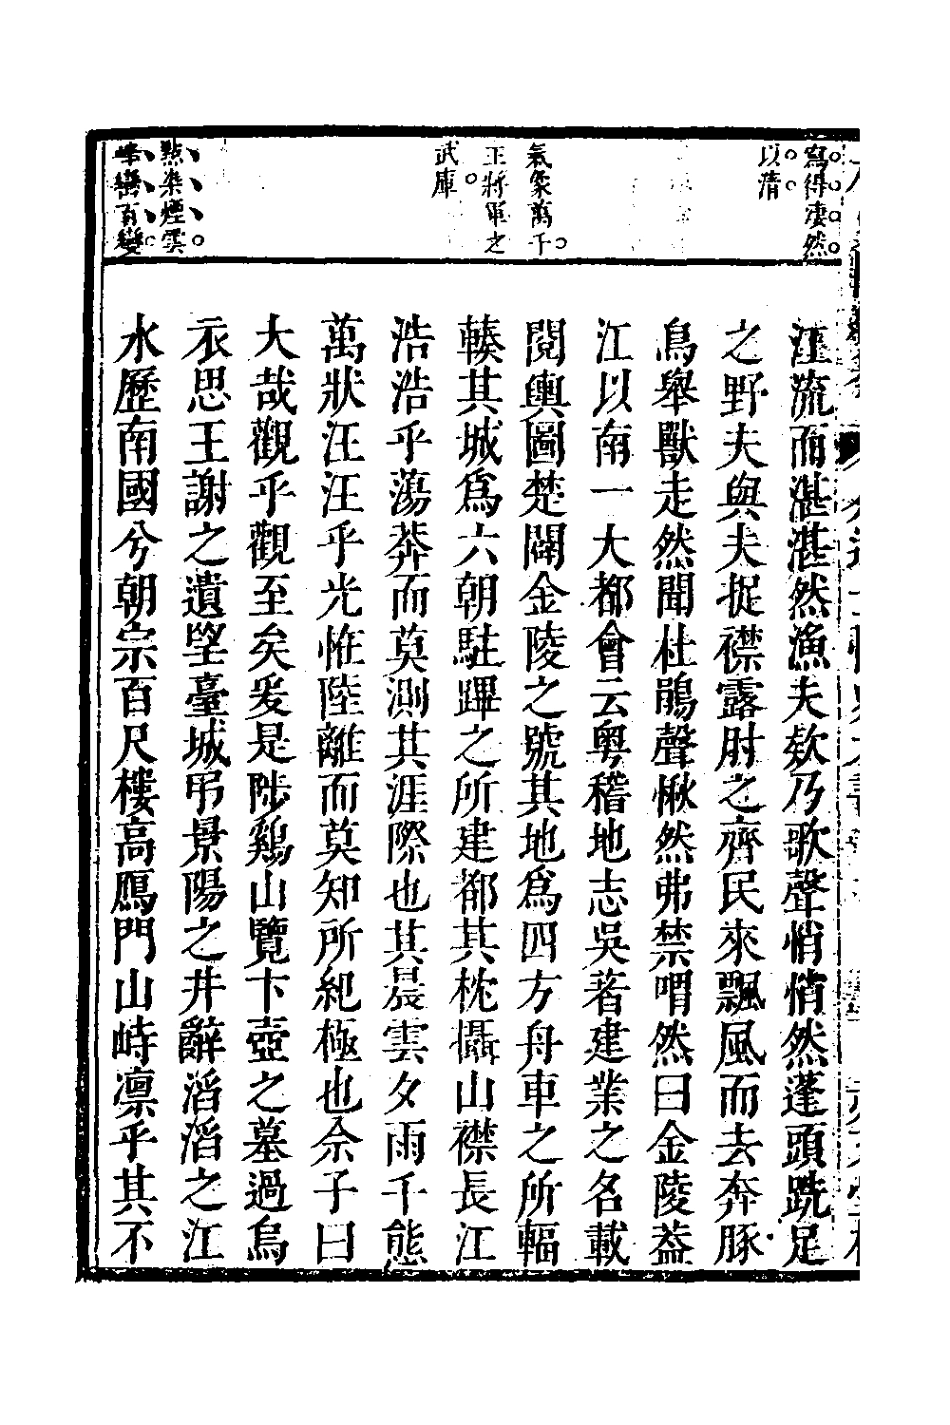 寫得淒然
以清
氣象萬千
王將軍之
武庫
點染煙雲
峰巒百變
江流而湛湛然漁夫欸乃歌聲悄悄然蓬頭跣足
之野夫與夫捉襟露肘之齊民來飄風而去奔豚
鳥舉獸走然聞杜鵑聲愀然弗禁喟然曰金陵葢
江以南一大都會云粵稽地志吳著建業之名載
閱輿圖楚闢金陵之號其地爲四方舟車之所輻
輳其城爲六朝駐蹕之所建都其枕攝山襟長江
浩浩乎蕩莽而莫測其涯際也其晨雲夕雨千態
萬狀汪汪乎光恠陸離而莫知所紀極也佘子曰
大哉觀乎觀至矣爰是陟鷄山覽卞壺之墓過烏
衣思王謝之遺望臺城弔景陽之井辭滔滔之江
水歷南國兮朝宗百尺樓高鴈門山峙凛乎其不